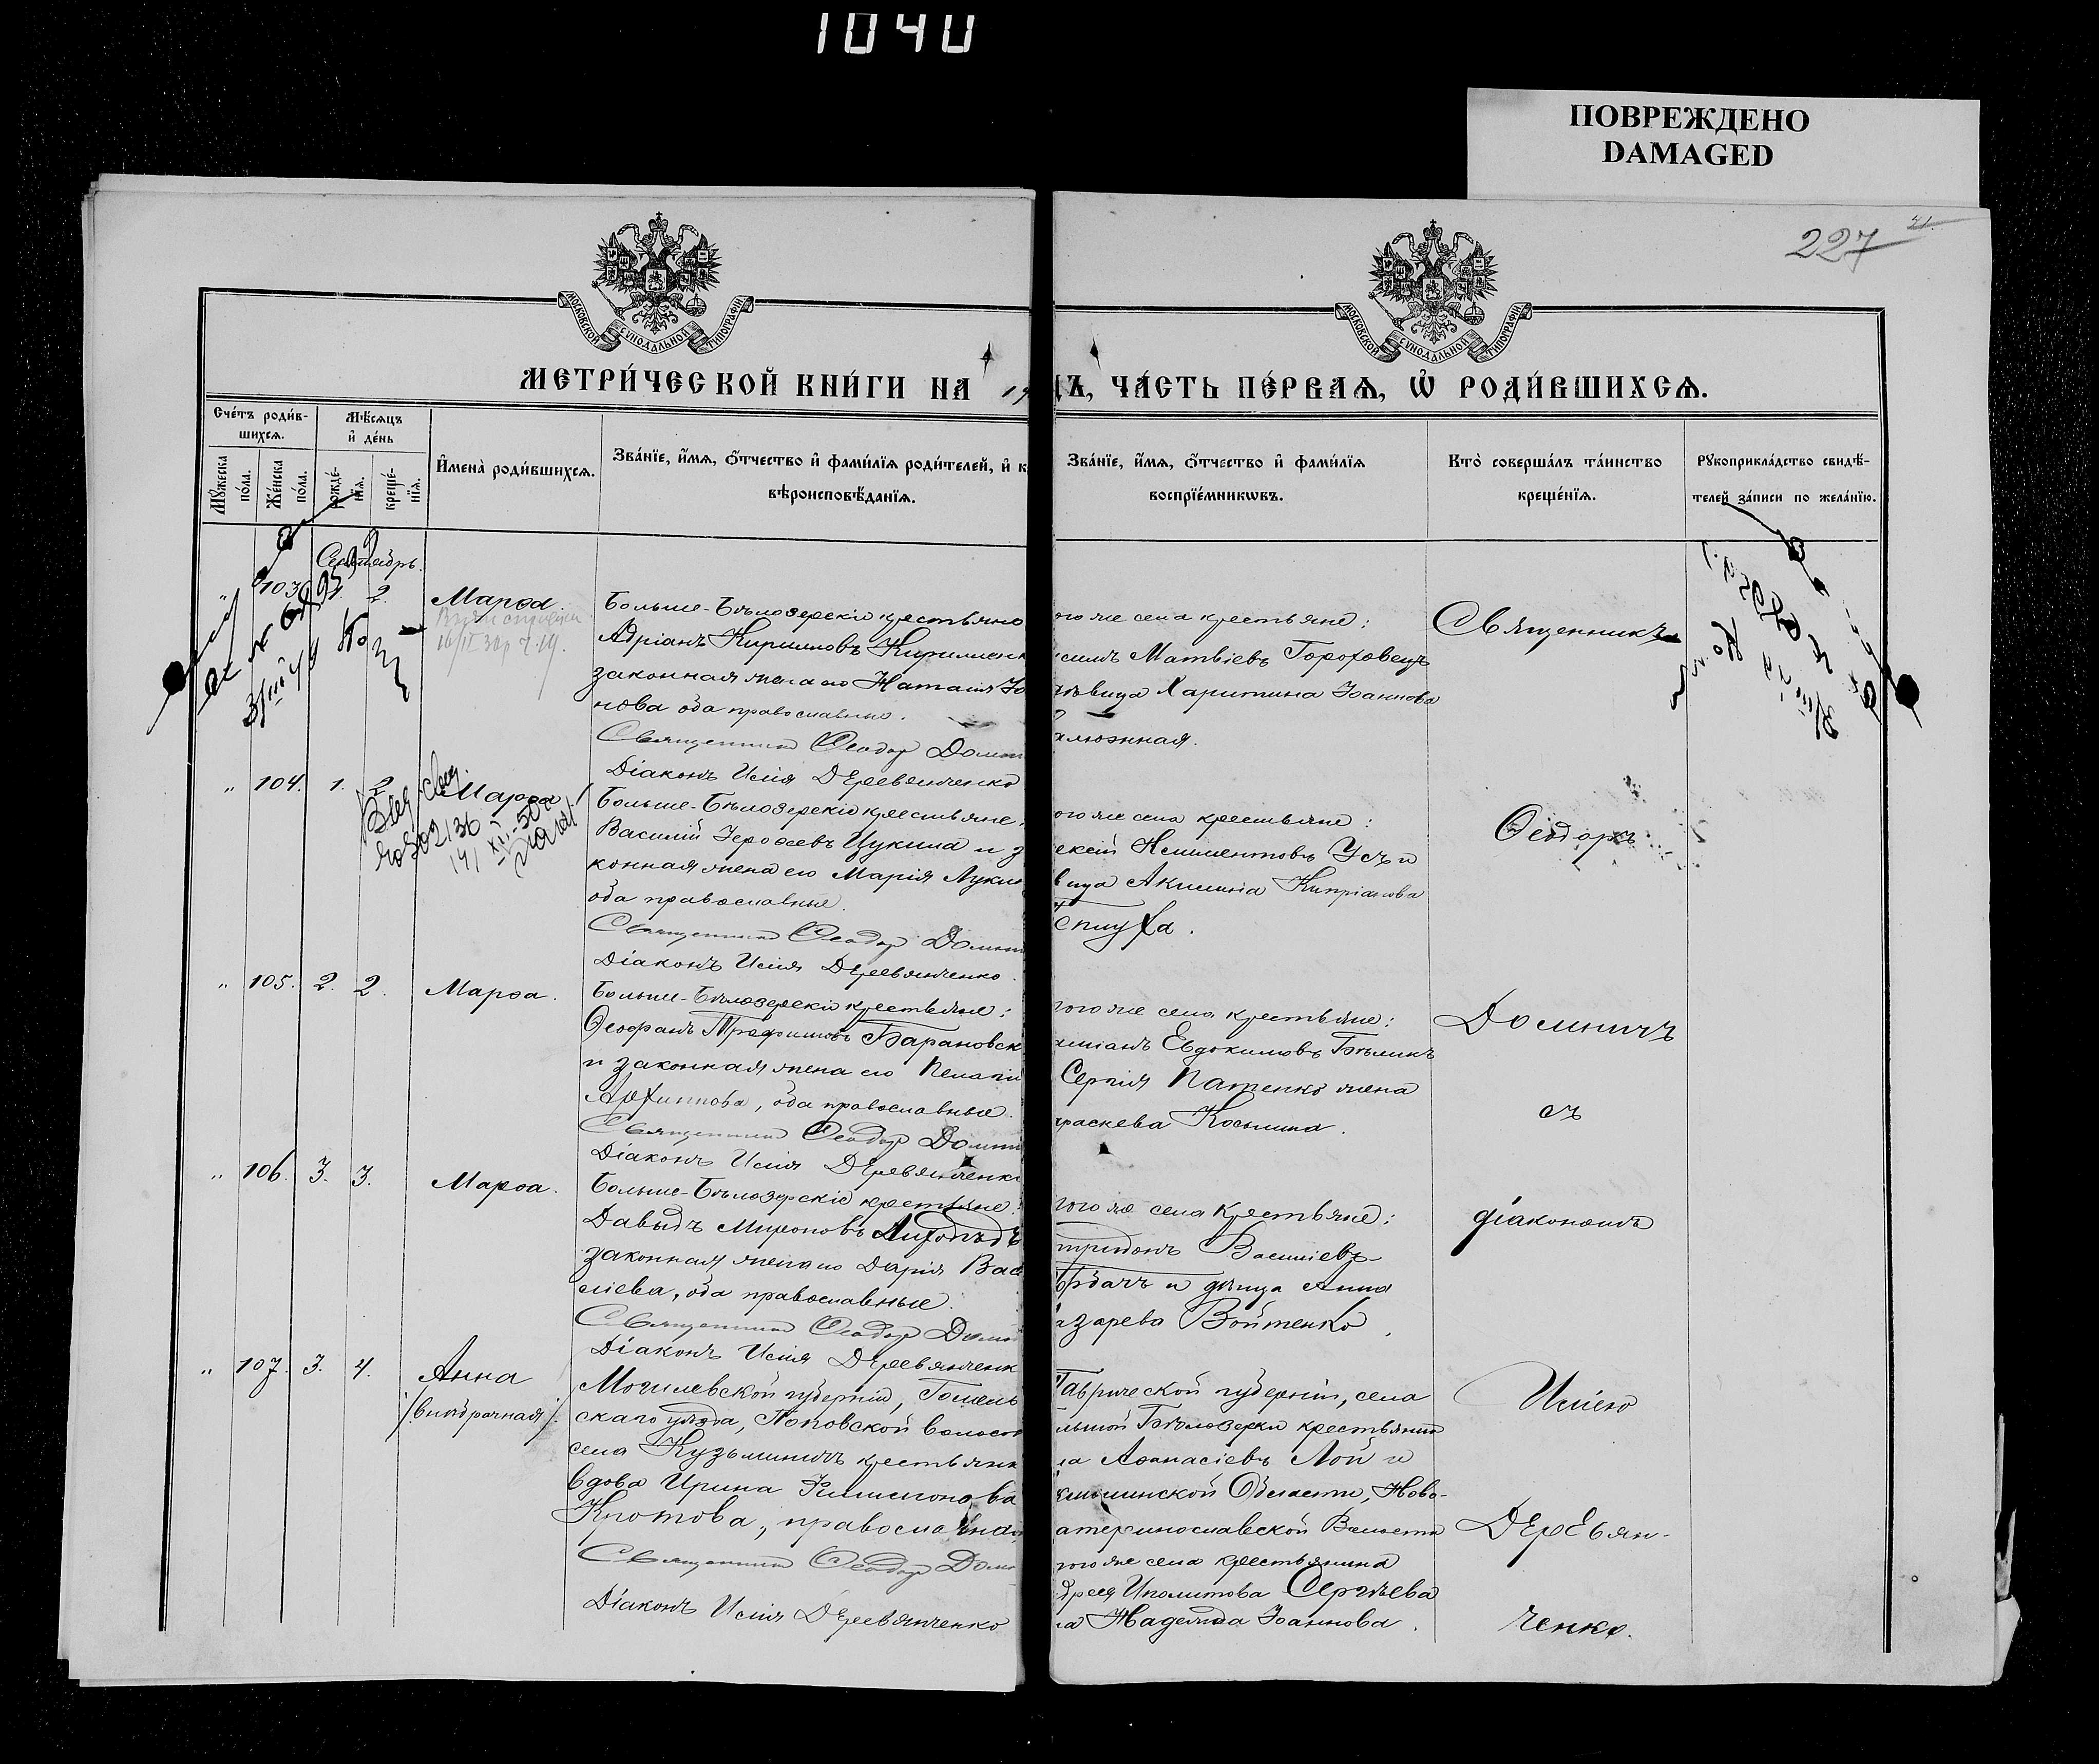 1040
ПОВРЕЖДЕНО
DAMAGED
227
21.
МОСКОВСКОЙ СѴНОДАЛЬНОЙ ТИПОГРАФІИ
МОСКОВСКОЙ СѴНОДАЛЬНОЙ ТИПОГРАФІИ
МЕТРИ́ЧЕСКОЙ КНИ́ГИ НА 19
ДЪ, ЧА́СТЬ ПЕ́РВАѦ, Ѡ҆ РОДИ́ВШИХСѦ.
Сче́тъ роди́в-
шихсѧ.
Мꙋ́жеска по́ла.
Же́нска по́ла.
Мѣ́сѧцъ
и҆ де́нь
рожде́-нїѧ.
креще́-нїѧ.
И҆мена̀ роди́вшихсѧ.
Зва́нїе, и҆́мѧ, ѻ҆́тчество и҆ фами́лїѧ роди́телей, и҆ к
вѣроисповѣ́данїѧ.
Зва́нїе, и҆́мѧ, ѻ҆́тчество и҆ фами́лїѧ
воспрїе́мникѡвъ.
Кто̀ соверша́лъ та́инство
креще́нїѧ.
Рꙋкоприкла́дство свидѣ́-
телей за́писи по жела́нїю.
Сентябрь.
" 103. 1. 2. Марѳа.
Больше-Бѣлозерскіе крестьяне
Адріанъ Кириловъ Кириленк
законная жена его Наталія Іо
нова оба православные.
Священникъ Ѳеодоръ Домни
Діаконъ Исаія Деревянченко
ого же села крестьяне:
силъ Матвіевъ Гороховецъ
дѣвица Харитина Іоаннова
алюжная.
Священникъ
" 104. 1. 2. Марѳа
Больше-Бѣлозерскіе крестьяне:
Василій Іероѳеевъ Цукила и з
конная жена его Марія Лукин
оба православные.
Священникъ Ѳеодоръ Домни
Діаконъ Исаія Деревянченко.
ого же села крестьяне:
ексѣй Климентовъ Усъ и
вица Акилина Кипріанова
епуха.
Ѳеодоръ
" 105. 2. 2. Марѳа.
Больше-Бѣлозерскіе крестьяне:
Ѳеофанъ Трофимовъ Барановск
и законная жена его Пелагія
Архиппова, оба православные.
Священникъ Ѳеодоръ Домни
Діаконъ Исаія Деревянченко
того же села крестьяне:
аміанъ Евдокимовъ Бѣликъ
Сергія Патенко жена
араскева Косьмина.
Домничъ
съ
" 106. 3. 3. Марѳа.
Больше-Бѣлозерскіе крестьяне:
Давыдъ Мироновъ Лиходѣдъ
законная жена его Дарія Вас
иліева, оба православные.
Священникъ Ѳеодоръ Домни
Діаконъ Исаія Деревянченк
того же села крестьяне:
пиридонъ Василіевъ
рдачъ и дѣвица Анна
азарева Войтенко.
діакономъ
" 107. 3. 4. Анна
/внѣбрачная/.
Могилевской губерніи, Гомель
скаго уѣзда, Поповской волост
села Кузьминичъ крестьянк
вдова Ирина Филимонова
Кротова, православная
Священникъ Ѳеодоръ Домн
Діаконъ Исаія Деревянченко
Таврической губерніи, села
льшой Бѣлозерки крестьянин
ла Аѳанасіевъ Лой и
кмолинской Области, Ново-
атеринославской Волости
того же села крестьянина
дрея Иполитова Сергѣева
на Надежда Іоаннова.
Исаіею
Деревян-
ченко.